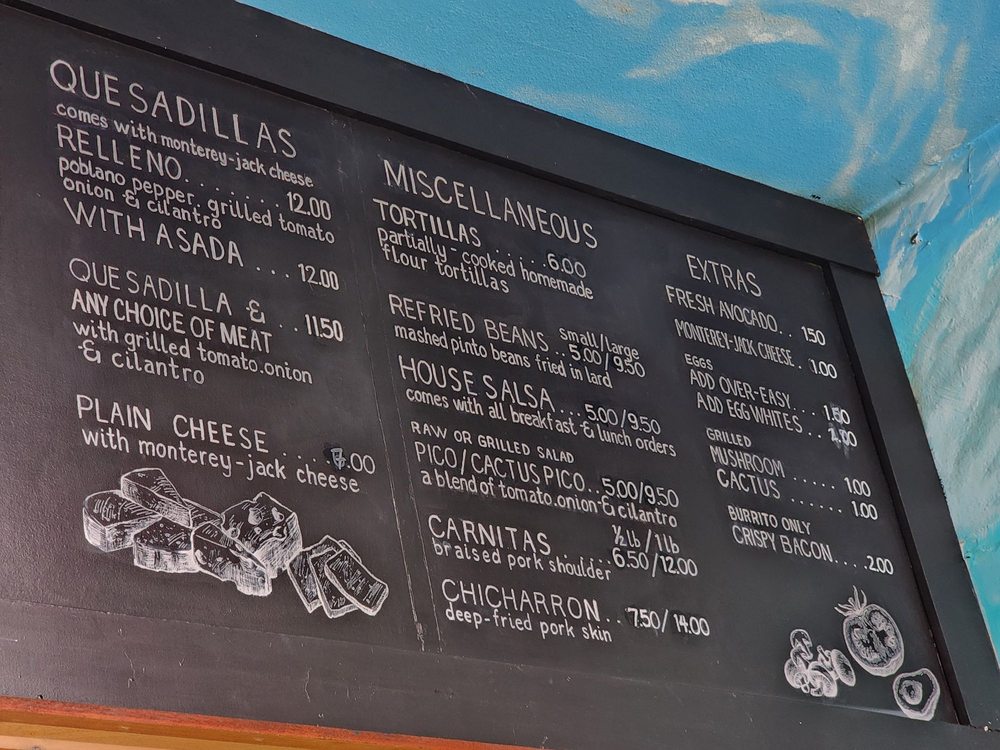 QUESADILLAS
comes with monterey-jack cheese
RELLENO....... 12.00
poblano pepper, grilled tomato
onion & cilantro
WITH ASADA .... 12.00
QUESADILLA &
ANY CHOICE OF MEAT .. 11.50
with grilled tomato.onion
& cilantro
PLAIN CHEESE ..... .00
with monterey-jack cheese
MISCELLANEOUS
TORTILLAS ...... 6.00
partially-cooked homemade
flour tortillas
small/large
REFRIED BEANS ..5.00/9.50
mashed pinto beans fried in lard
HOUSE SALSA...5.00/9.50
comes with all breakfast & lunch orders
RAW OR GRILLED SALAD
PICO/CACTUS PICO..5.00/9.50
a blend of tomato.onion & cilantro
½lb/1lb
CARNITAS ......6.50/12.00
braised pork shoulder
CHICHARRON.. 7.50/14.00
deep-fried pork skin
EXTRAS
FRESH AVOCADO.. 1.50
MONTEREY-JACK CHEESE . 1.00
EGGS
ADD OVER-EASY.... 1.50
ADD EGG WHITES .. 2.00
GRILLED
MUSHROOM ...... 1.00
CACTUS ...... 1.00
BURRITO ONLY
CRISPY BACON.... 2.00